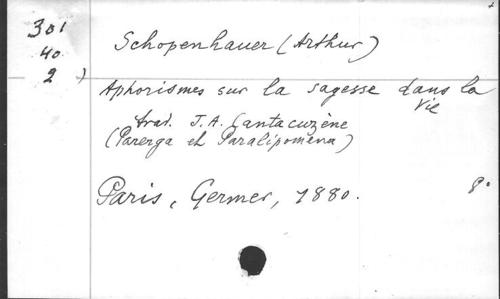 301
40
2 )
Schopenhauer (Arthur)
Aphorismes sur la sagesse dans la
vie
trad. J.A. Cantacuzène
(Parerga et Paralipomena)
Paris, Germer, 1880.
8°